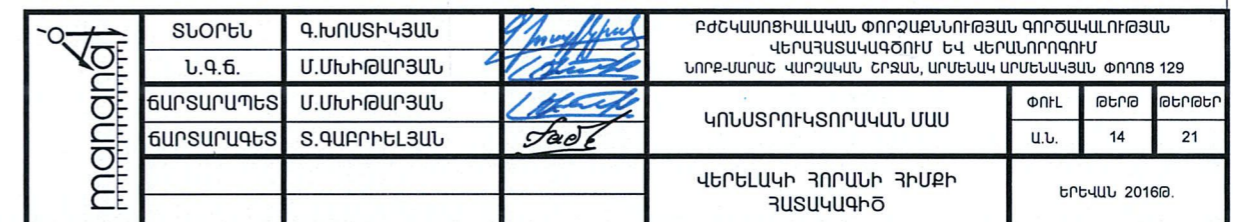 manana
ՏՆՕՐԵՆ Գ.ԽՈՍՏԻԿՅԱՆ
Ն.Գ.Ճ. Մ.ՄԽԻԹԱՐՅԱՆ
ՃԱՐՏԱՐԱՊԵՏ Մ.ՄԽԻԹԱՐՅԱՆ
ՃԱՐՏԱՐԱԳԵՏ Տ.ԳԱԲՐԻԵԼՅԱՆ
ԲԺՇԿԱՍՈՑԻԱԼԱԿԱՆ ՓՈՐՁԱՔՆՆՈՒԹՅԱՆ ԳՈՐԾԱԿԱԼՈՒԹՅԱՆ
ՎԵՐԱՀԱՏԱԿԱԳԾՈՒՄ ԵՎ ՎԵՐԱՆՈՐՈԳՈՒՄ
ՆՈՐՔ-ՄԱՐԱՇ ՎԱՐՉԱԿԱՆ ՇՐՋԱՆ, ԱՐՄԵՆԱԿ ԱՐՄԵՆԱԿՅԱՆ ՓՈՂՈՑ 129
ԿՈՆՍՏՐՈՒԿՏՈՐԱԿԱՆ ՄԱՍ
ՓՈՒԼ ԹԵՐԹ ԹԵՐԹԵՐ
Ա.Ն. 14 21
ՎԵՐԵԼԱԿԻ ՀՈՐԱՆԻ ՀԻՄՔԻ
ՀԱՏԱԿԱԳԻԾ
ԵՐԵՎԱՆ 2016Թ.